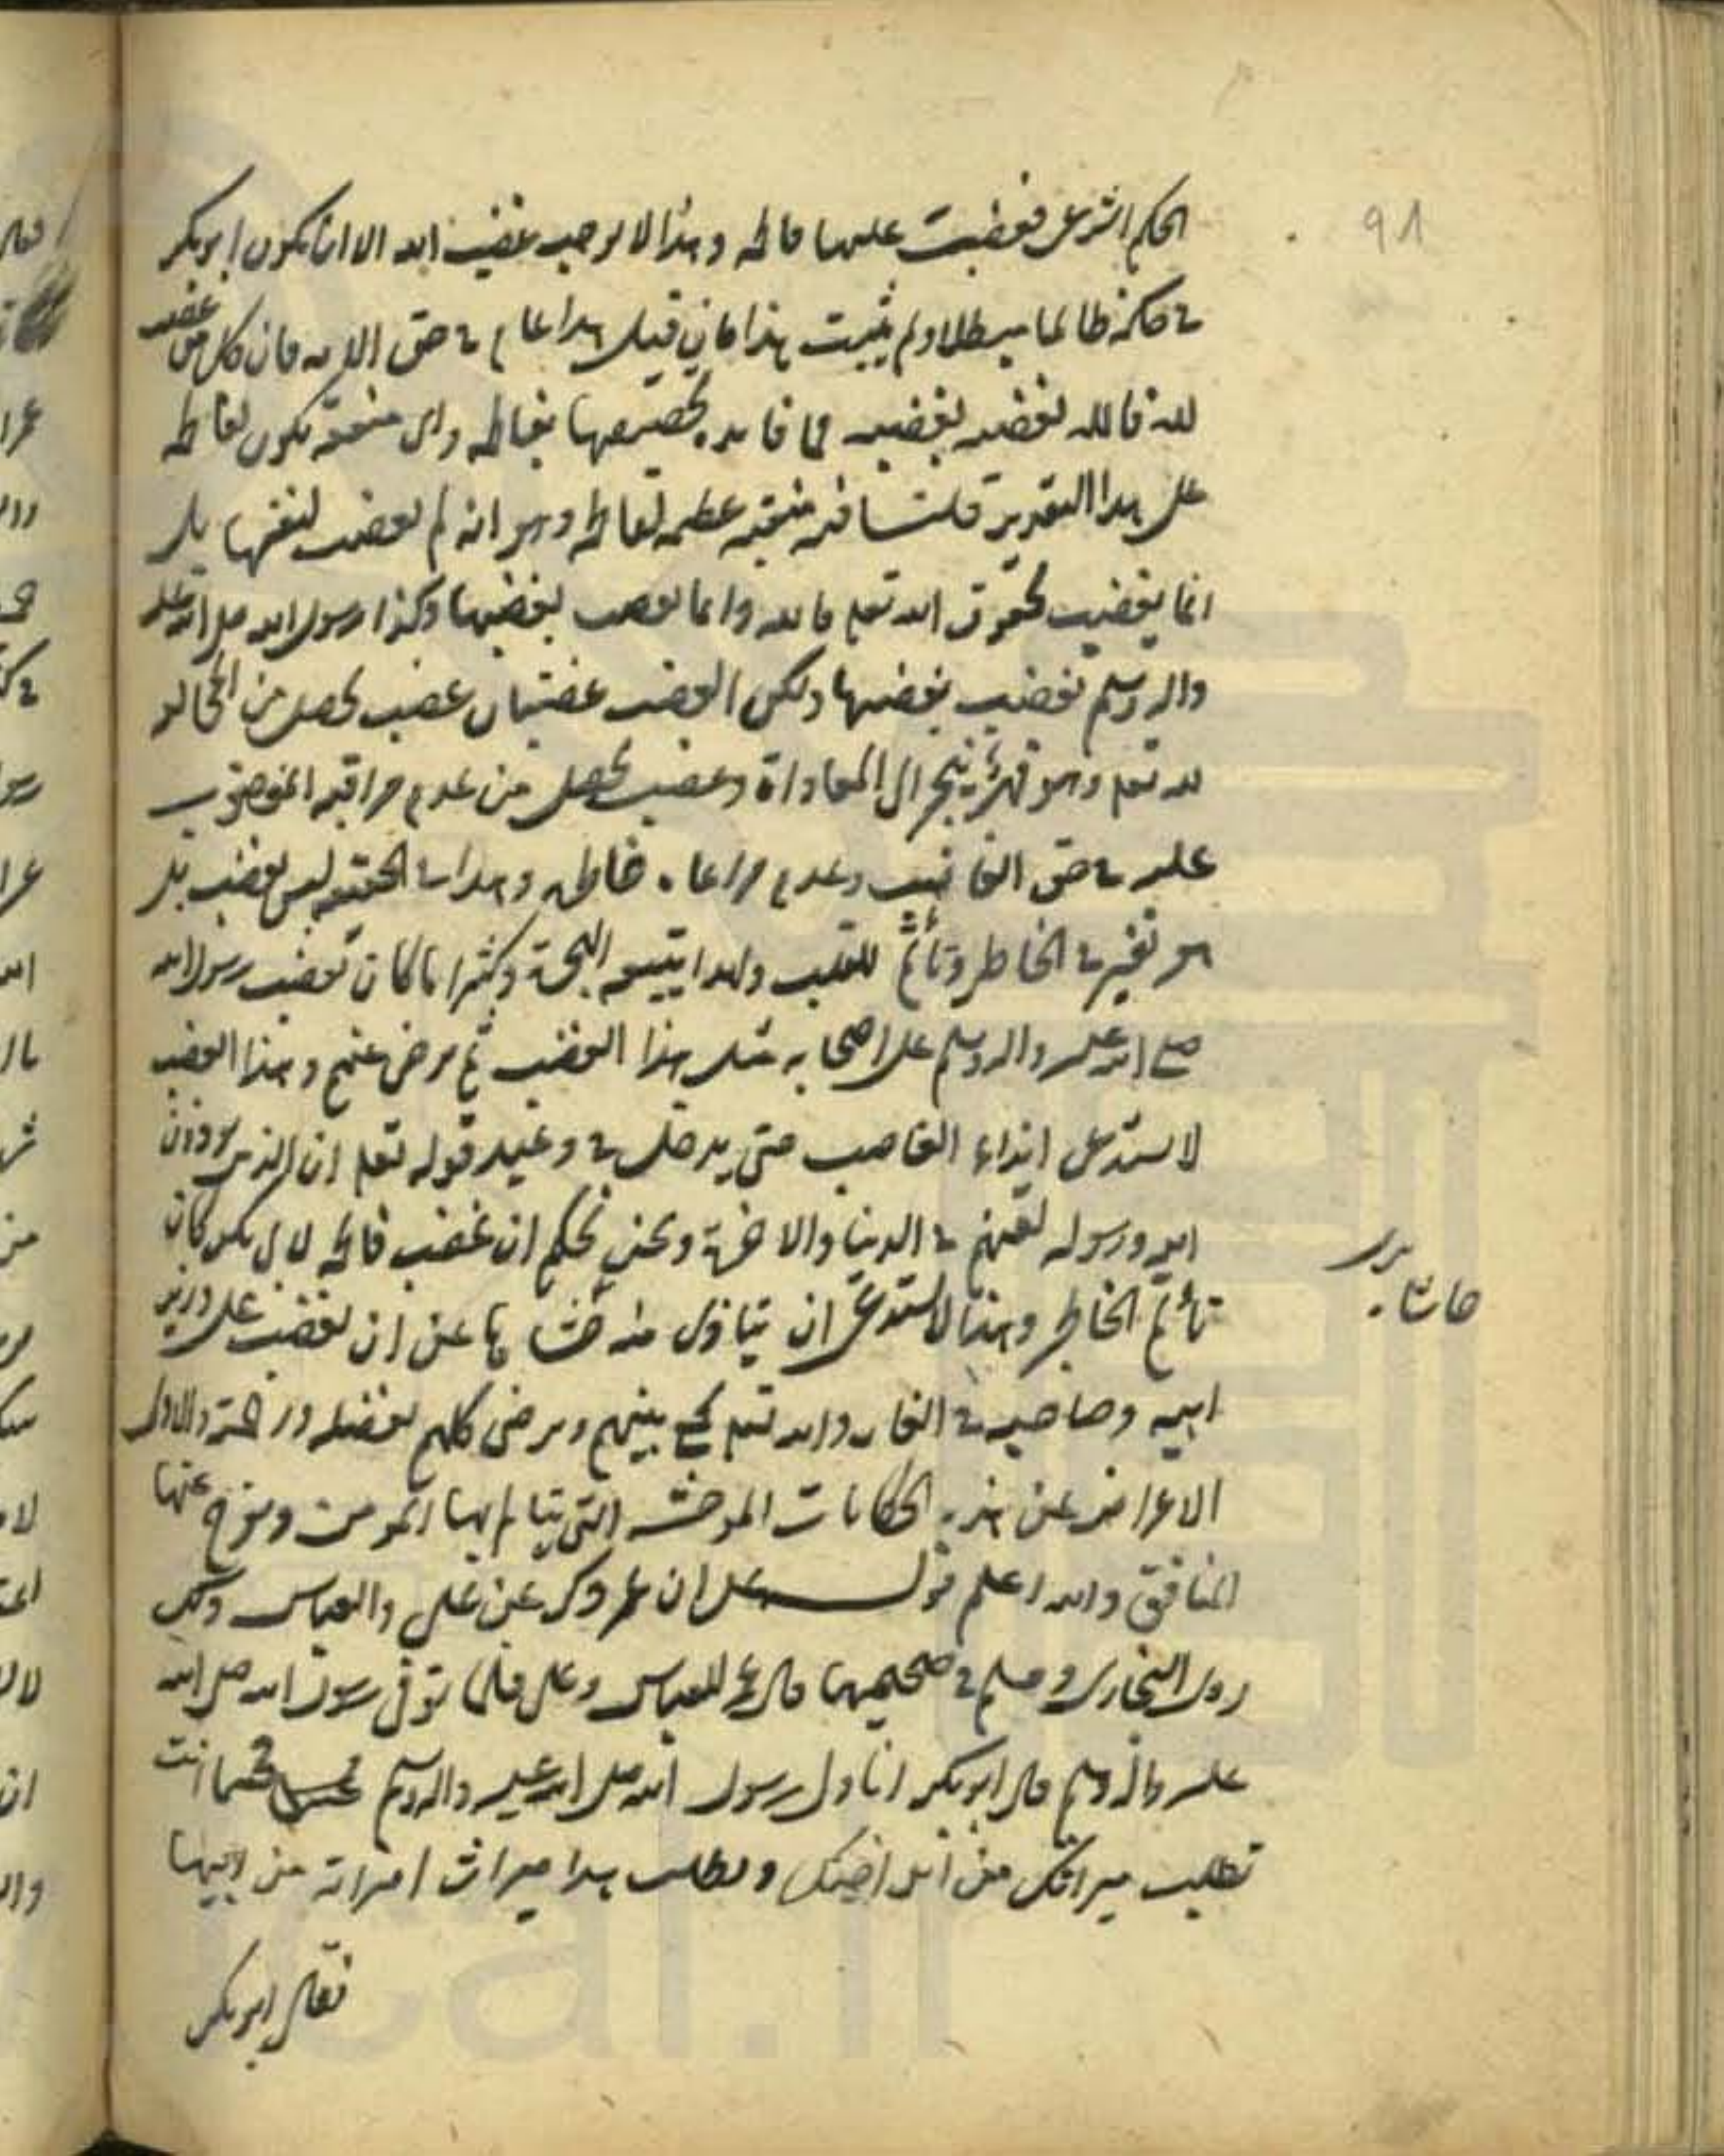 91
الحكم الشرعى فغضبت عليها فاطمه وهذا لا يوجب غضب الله الا ان يكون ابوبكر
فى حكمه ظالما مبطلا ولم يثبت هذا فان قيل هذا عام فى حق الامه فان كل من غضب
لله فالله يغضب لغضبه فما فايده تخصيصها بفاطمه واى منقبة يكون لفاطمه
على هذا التقدير قلت فيه منقبه عظيمه لفاطمه وهو انه لم يغضب لنفسها بل
انما يغضب لحقوق الله تعلم فالله وانما يغضب لغضبها وكذا رسول الله صلى الله عليه
واله وسلم يغضب بغضبها ولكن الغضب غضبان غضب يحصل من المخالفه
لله تعلم وهو ينجر الى المعاداة وغضب يحصل من عدم مراقبه المغضوب
عليه فى حق الغاضب وعدم مراعاه خاطره وهذا فى الحقيقه ليس بغضب بل
هو تغير فى الخاطر وتألم للقلب ولهذا يتبعه المحبة وكثيرا ما كان يغضب رسول الله
صلى الله عليه واله وسلم على اصحابه مثل هذا الغضب ثم يرضى عنهم وهذا الغضب
لا يستدعى ايذاء الغاضب حتى يدخل فى وعيد قوله تعلم ان الذين يوذون
الله ورسوله لعنهم فى الدنيا والاخرة ونحن نحكم ان غضب فاطمه لابى بكر كان
تألم الخاطر وهذا لا يستدعى ان يتأذى منه حاشاها عن ان يغضب على وزير
ابيه وصاحبه فى الغار والله تعلم يجمع بينهم ويرضى كلهم بفضله ورحمته والاولى
الاعراض عن هذه الحكايات الموحشه التى يتالم بها المومن ويفرح عنها
المنافق والله اعلم قوله على ان عمر ذكر عن على والعباس ذلك
روى البخارى ومسلم فى صحيحيهما قال عمر للعباس وعلى فلما توفى رسول الله صلى الله
عليه واله وسلم قال ابوبكر انا ولى رسول الله صلى الله عليه واله وسلم فجئتما انت
تطلب ميراثك من ابن اخيك ويطلب هذا ميراث امراته من ابيها
فقال ابوبكر
حاشاه